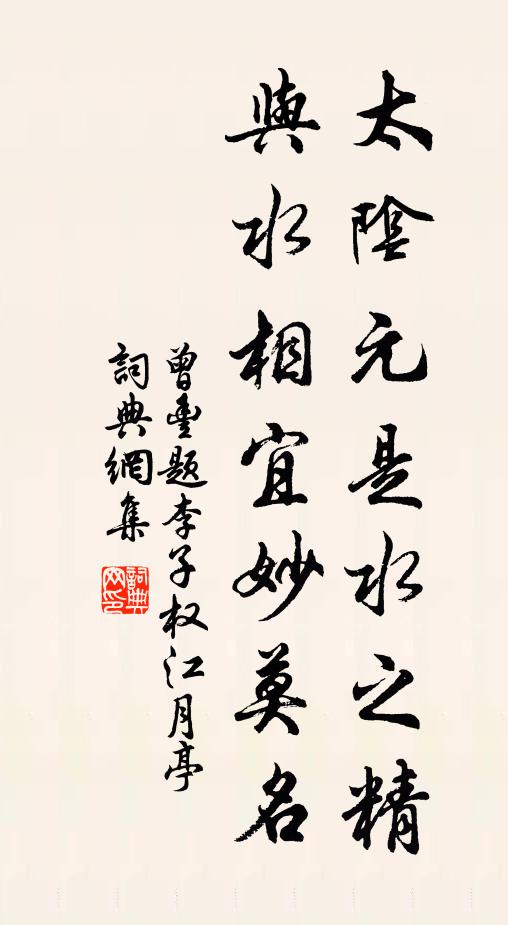 太陰元是水之精
與水相宜妙莫名
曾豐題李子权江月亭
詞典網集
詞典
网印